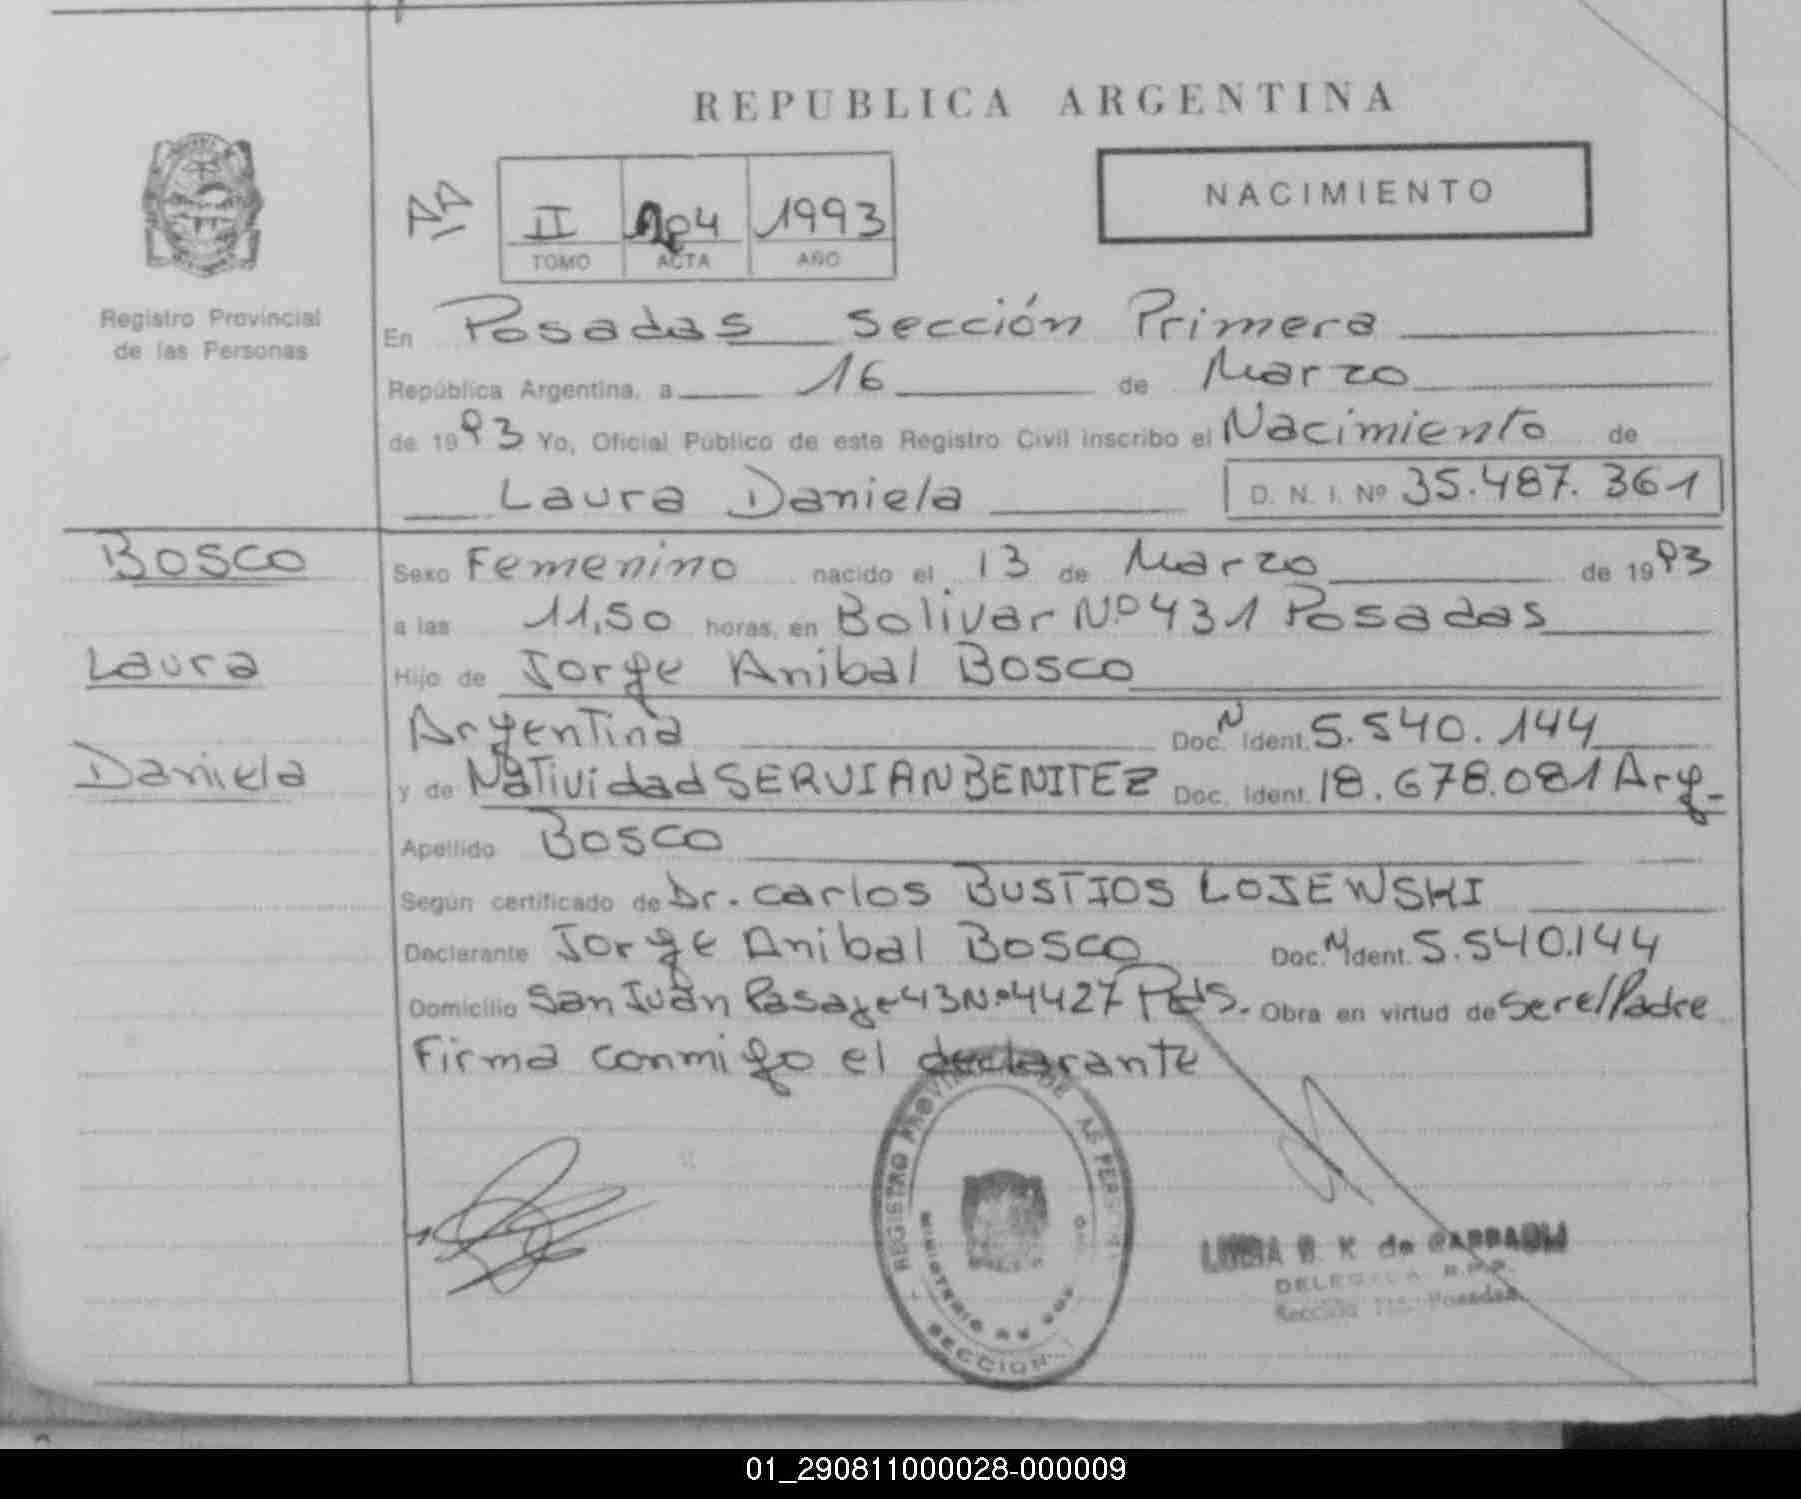 REPUBLICA ARGENTINA
NACIMIENTO
II 1993
TOMO ACTA AÑO
Registro Provincial
de las Personas
En Posadas Sección Primera
República Argentina, a 16 de Marzo
de 1993 Yo, Oficial Público de este Registro Civil inscribo el Nacimiento de
Laura Daniela D. N. I. Nº 35.487.361
Bosco
Laura
Daniela
Sexo Femenino nacido el 13 de Marzo de 1993
a las 11,50 horas, en Bolivar Nº 431 Posadas
Hijo de Jorge Anibal Bosco
Argentina Doc. N Ident. 5.540.144
y de Natividad SERVIAN BENITEZ Doc. Ident. 18.678.081 Arg.
Apellido Bosco
Según certificado de Dr. Carlos BUSTIOS LOJEWSKI
Declarante Jorge Anibal Bosco Doc. N Ident. 5.540.144
Domicilio San Juan Pasaje 43 Nº 4427 Pds. Obra en virtud de Ser el Padre
Firma conmigo el declarante
REGISTRO DE PERSONAS
MINISTERIO DE
SECCION
B. K. de
DELEGADA R.P.P.
Sección Posadas
01_290811000028-000009